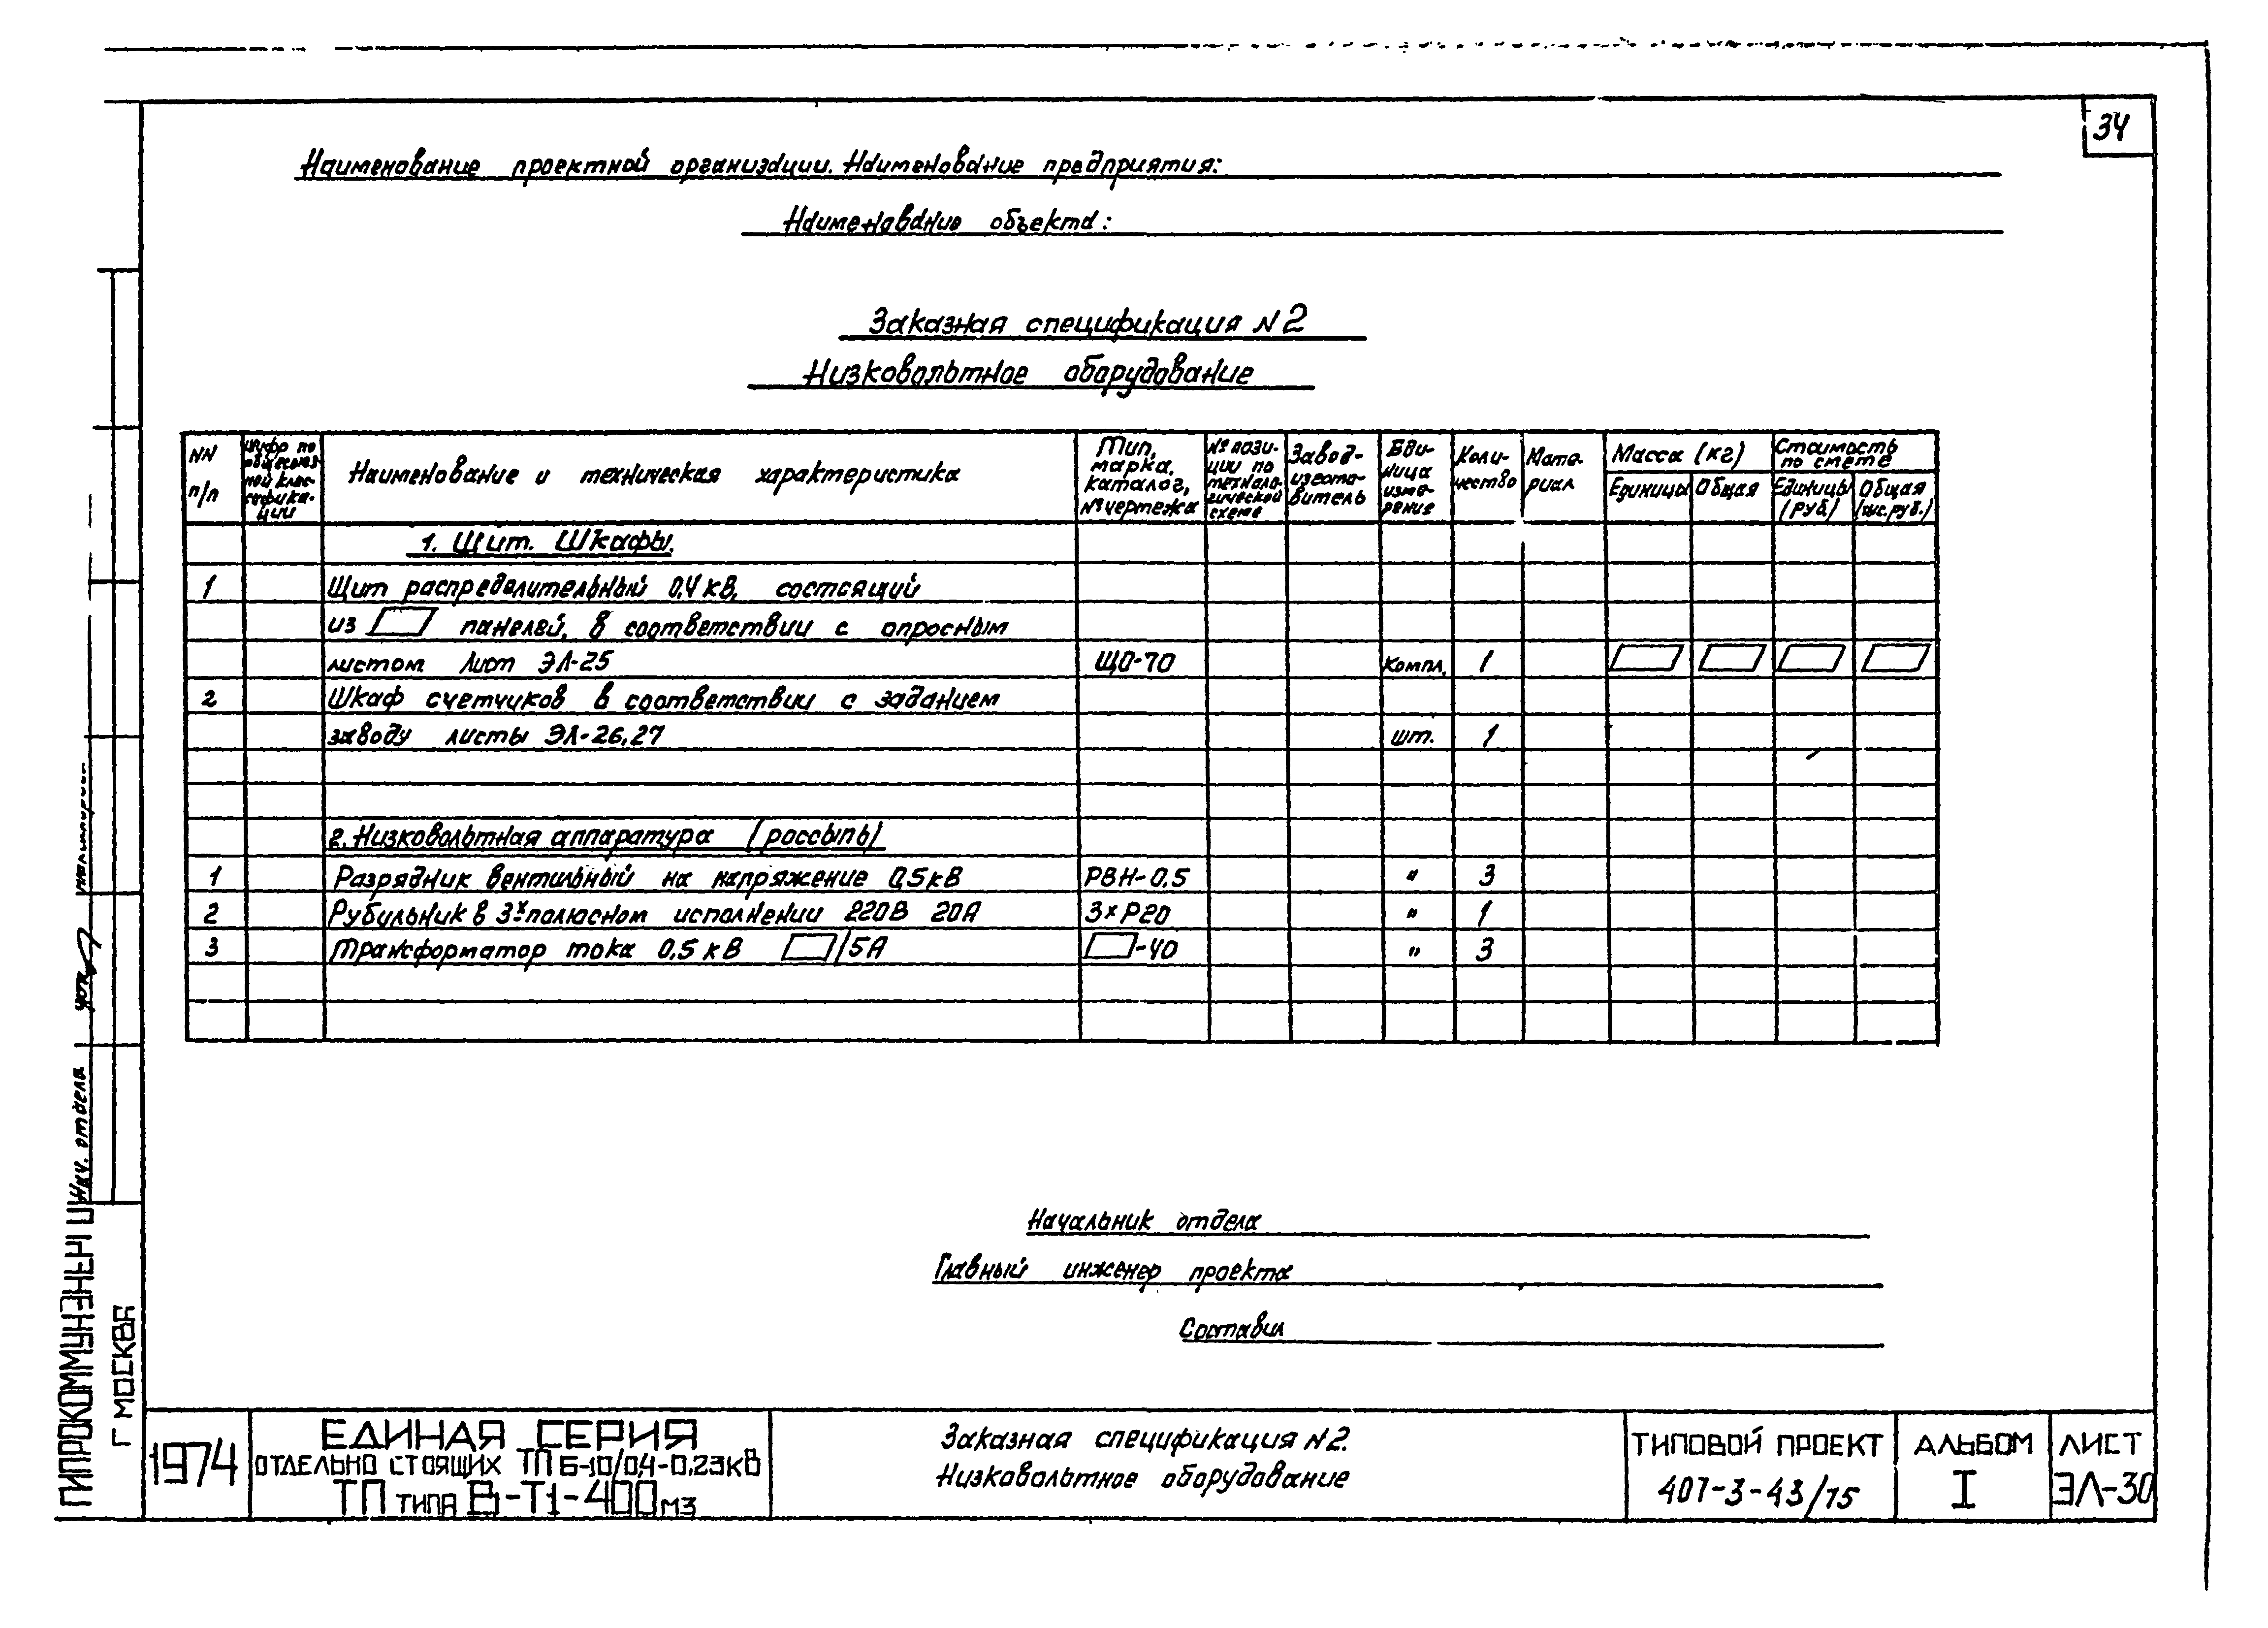 34
Наименование проектной организации. Наименование предприятия:
Наименование объекта:
Заказная спецификация N2
Низковольтное оборудование
NN п/п
Шифр по общесоюзной классификации
Наименование и техническая характеристика
Тип, марка, каталог, № чертежа
№ позиции по технологической схеме
Завод-изготовитель
Единица измерения
Количество
Материал
Масса (кг)
Единицы
Общая
Стоимость по смете
Единицы (руб)
Общая (тыс.руб.)
1. Щит. Шкафы.
1 Щит распределительный 0,4 кВ, состоящий
из панелей, в соответствии с опросным
листом Лист ЭЛ-25 ЩО-70 Компл. 1
2 Шкаф счетчиков в соответствии с заданием
заводу листы ЭЛ-26,27 шт. 1
2. Низковольтная аппаратура (россыпь)
1 Разрядник вентильный на напряжение 0,5 кВ РВН-0,5 " 3
2 Рубильник в 3х полюсном исполнении 220В 20А 3хР20 " 1
3 Трансформатор тока 0,5 кВ /5А -40 " 3
Начальник отдела
Главный инженер проекта
Составил
Нач. отдела
ГИПРОКОММУНЭНЕРГО
Г МОСКВА
1974
ЕДИНАЯ СЕРИЯ
ОТДЕЛЬНО СТОЯЩИХ ТП 6-10/0,4-0,23КВ
ТП ТИПА В1-Т1-400 М3
Заказная спецификация N2.
Низковольтное оборудование
ТИПОВОЙ ПРОЕКТ
407-3-43/75
АЛЬБОМ
I
ЛИСТ
ЭЛ-30